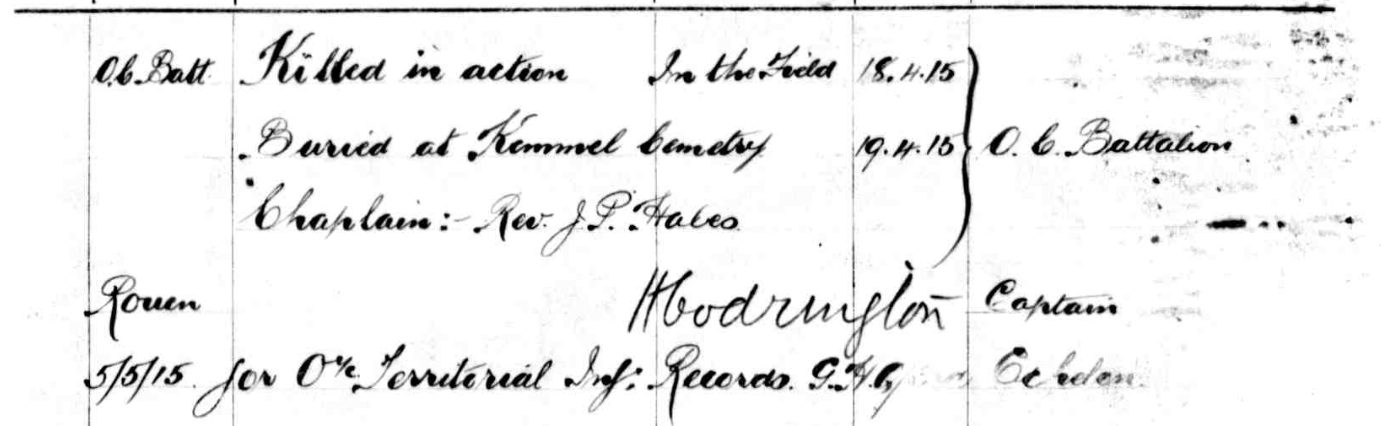 O.C. Batt. Killed in action In the Field 18.4.15
Buried at Kemmel Cemetry 19.4.15 O. C. Battalion
Chaplain:- Rev. J. P. Hales
Rouen HCodrington Captain
5/5/15. for O i/c Territorial Inf: Records. G.H.Q. Echelon